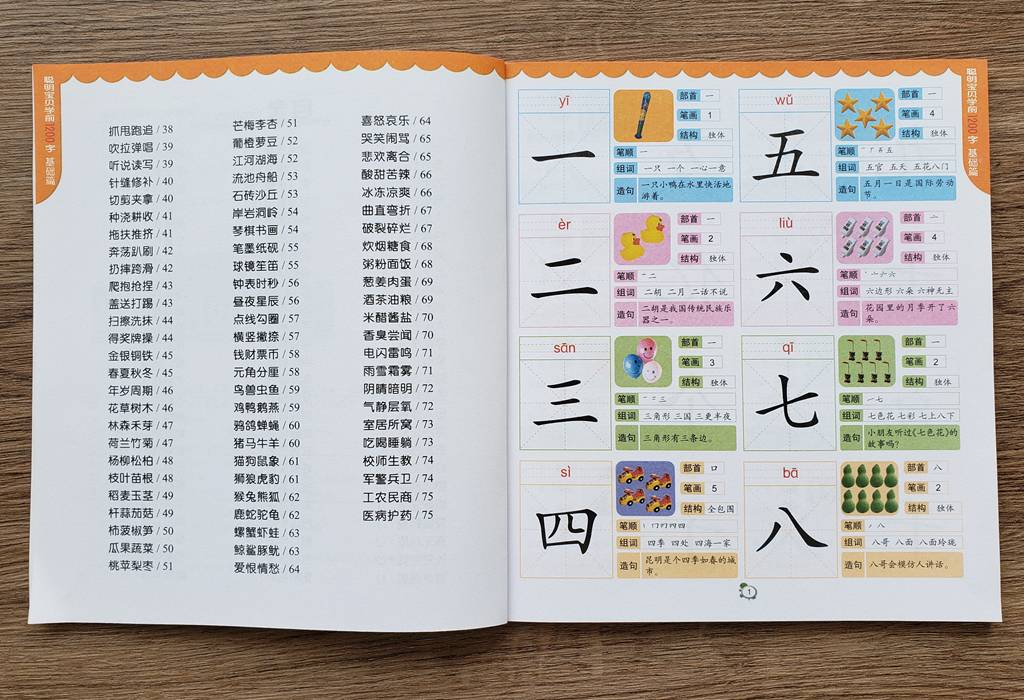 聪明宝贝学前1200字 基础篇
抓甩跑追 / 38
吹拉弹唱 / 39
听说读写 / 39
针缝修补 / 40
切剪夹拿 / 40
种浇耕收 / 41
拖扶推挤 / 41
奔荡趴刷 / 42
扔摔跨滑 / 42
爬抱抢捏 / 43
盖送打踢 / 43
扫擦洗抹 / 44
得奖牌操 / 44
金银铜铁 / 45
春夏秋冬 / 45
年岁周期 / 46
花草树木 / 46
林森禾芽 / 47
荷兰竹菊 / 47
杨柳松柏 / 48
枝叶苗根 / 48
稻麦玉茎 / 49
杆蒜茄菇 / 49
柿菠椒笋 / 50
瓜果蔬菜 / 50
桃苹梨枣 / 51
芒梅李杏 / 51
葡橙萝豆 / 52
江河湖海 / 52
流池舟船 / 53
石砖沙丘 / 53
岸岩洞岭 / 54
琴棋书画 / 54
笔墨纸砚 / 55
球镜笙笛 / 55
钟表时秒 / 56
昼夜星辰 / 56
点线勾圈 / 57
横竖撇捺 / 57
钱财票币 / 58
元角分厘 / 58
鸟兽虫鱼 / 59
鸡鸭鹅燕 / 59
鸦鸽蝉蝇 / 60
猪马牛羊 / 60
猫狗鼠象 / 61
狮狼虎豹 / 61
猴兔熊狐 / 62
鹿蛇驼龟 / 62
螺蟹虾蛙 / 63
鲸鲨豚鱿 / 63
爱恨情愁 / 64
喜怒哀乐 / 64
哭笑闹骂 / 65
悲欢离合 / 65
酸甜苦辣 / 66
冰冻凉爽 / 66
曲直弯折 / 67
破裂碎烂 / 67
炊烟糖食 / 68
粥粉面饭 / 68
葱姜肉蛋 / 69
酒茶油粮 / 69
米醋酱盐 / 70
香臭尝闻 / 70
电闪雷鸣 / 71
雨雪霜雾 / 71
阴晴暗明 / 72
气静层氧 / 72
室居所窝 / 73
吃喝睡躺 / 73
校师生教 / 74
军警兵卫 / 74
工农民商 / 75
医病护药 / 75
yī
一
部首 一
笔画 1
结构 独体
笔顺 一
组词 一只 一个 一心一意
造句 一只小鸭在水里快活地
游着。
wǔ
五
部首 一
笔画 4
结构 独体
笔顺 一 丆 五 五
组词 五官 五天 五花八门
造句 五月一日是国际劳动
节。
èr
二
部首 一
笔画 2
结构 独体
笔顺 一 二
组词 二胡 二月 二话不说
造句 二胡是我国传统民族乐
器之一。
liù
六
部首 亠
笔画 4
结构 独体
笔顺 丶 亠 六 六
组词 六边形 六朵 六神无主
造句 花园里的月季开了六
朵。
sān
三
部首 一
笔画 3
结构 独体
笔顺 一 二 三
组词 三角形 三国 三更半夜
造句 三角形有三条边。
qī
七
部首 一
笔画 2
结构 独体
笔顺 一 七
组词 七色花 七彩 七上八下
造句 小朋友听过《七色花》的
故事吗?
sì
四
部首 口
笔画 5
结构 全包围
笔顺 丨 冂 冂 四 四
组词 四季 四处 四海一家
造句 昆明是个四季如春的城
市。
bā
八
部首 八
笔画 2
结构 独体
笔顺 丿 八
组词 八哥 八面 八面玲珑
造句 八哥会模仿人讲话。
聪明宝贝学前1200字 基础篇
1